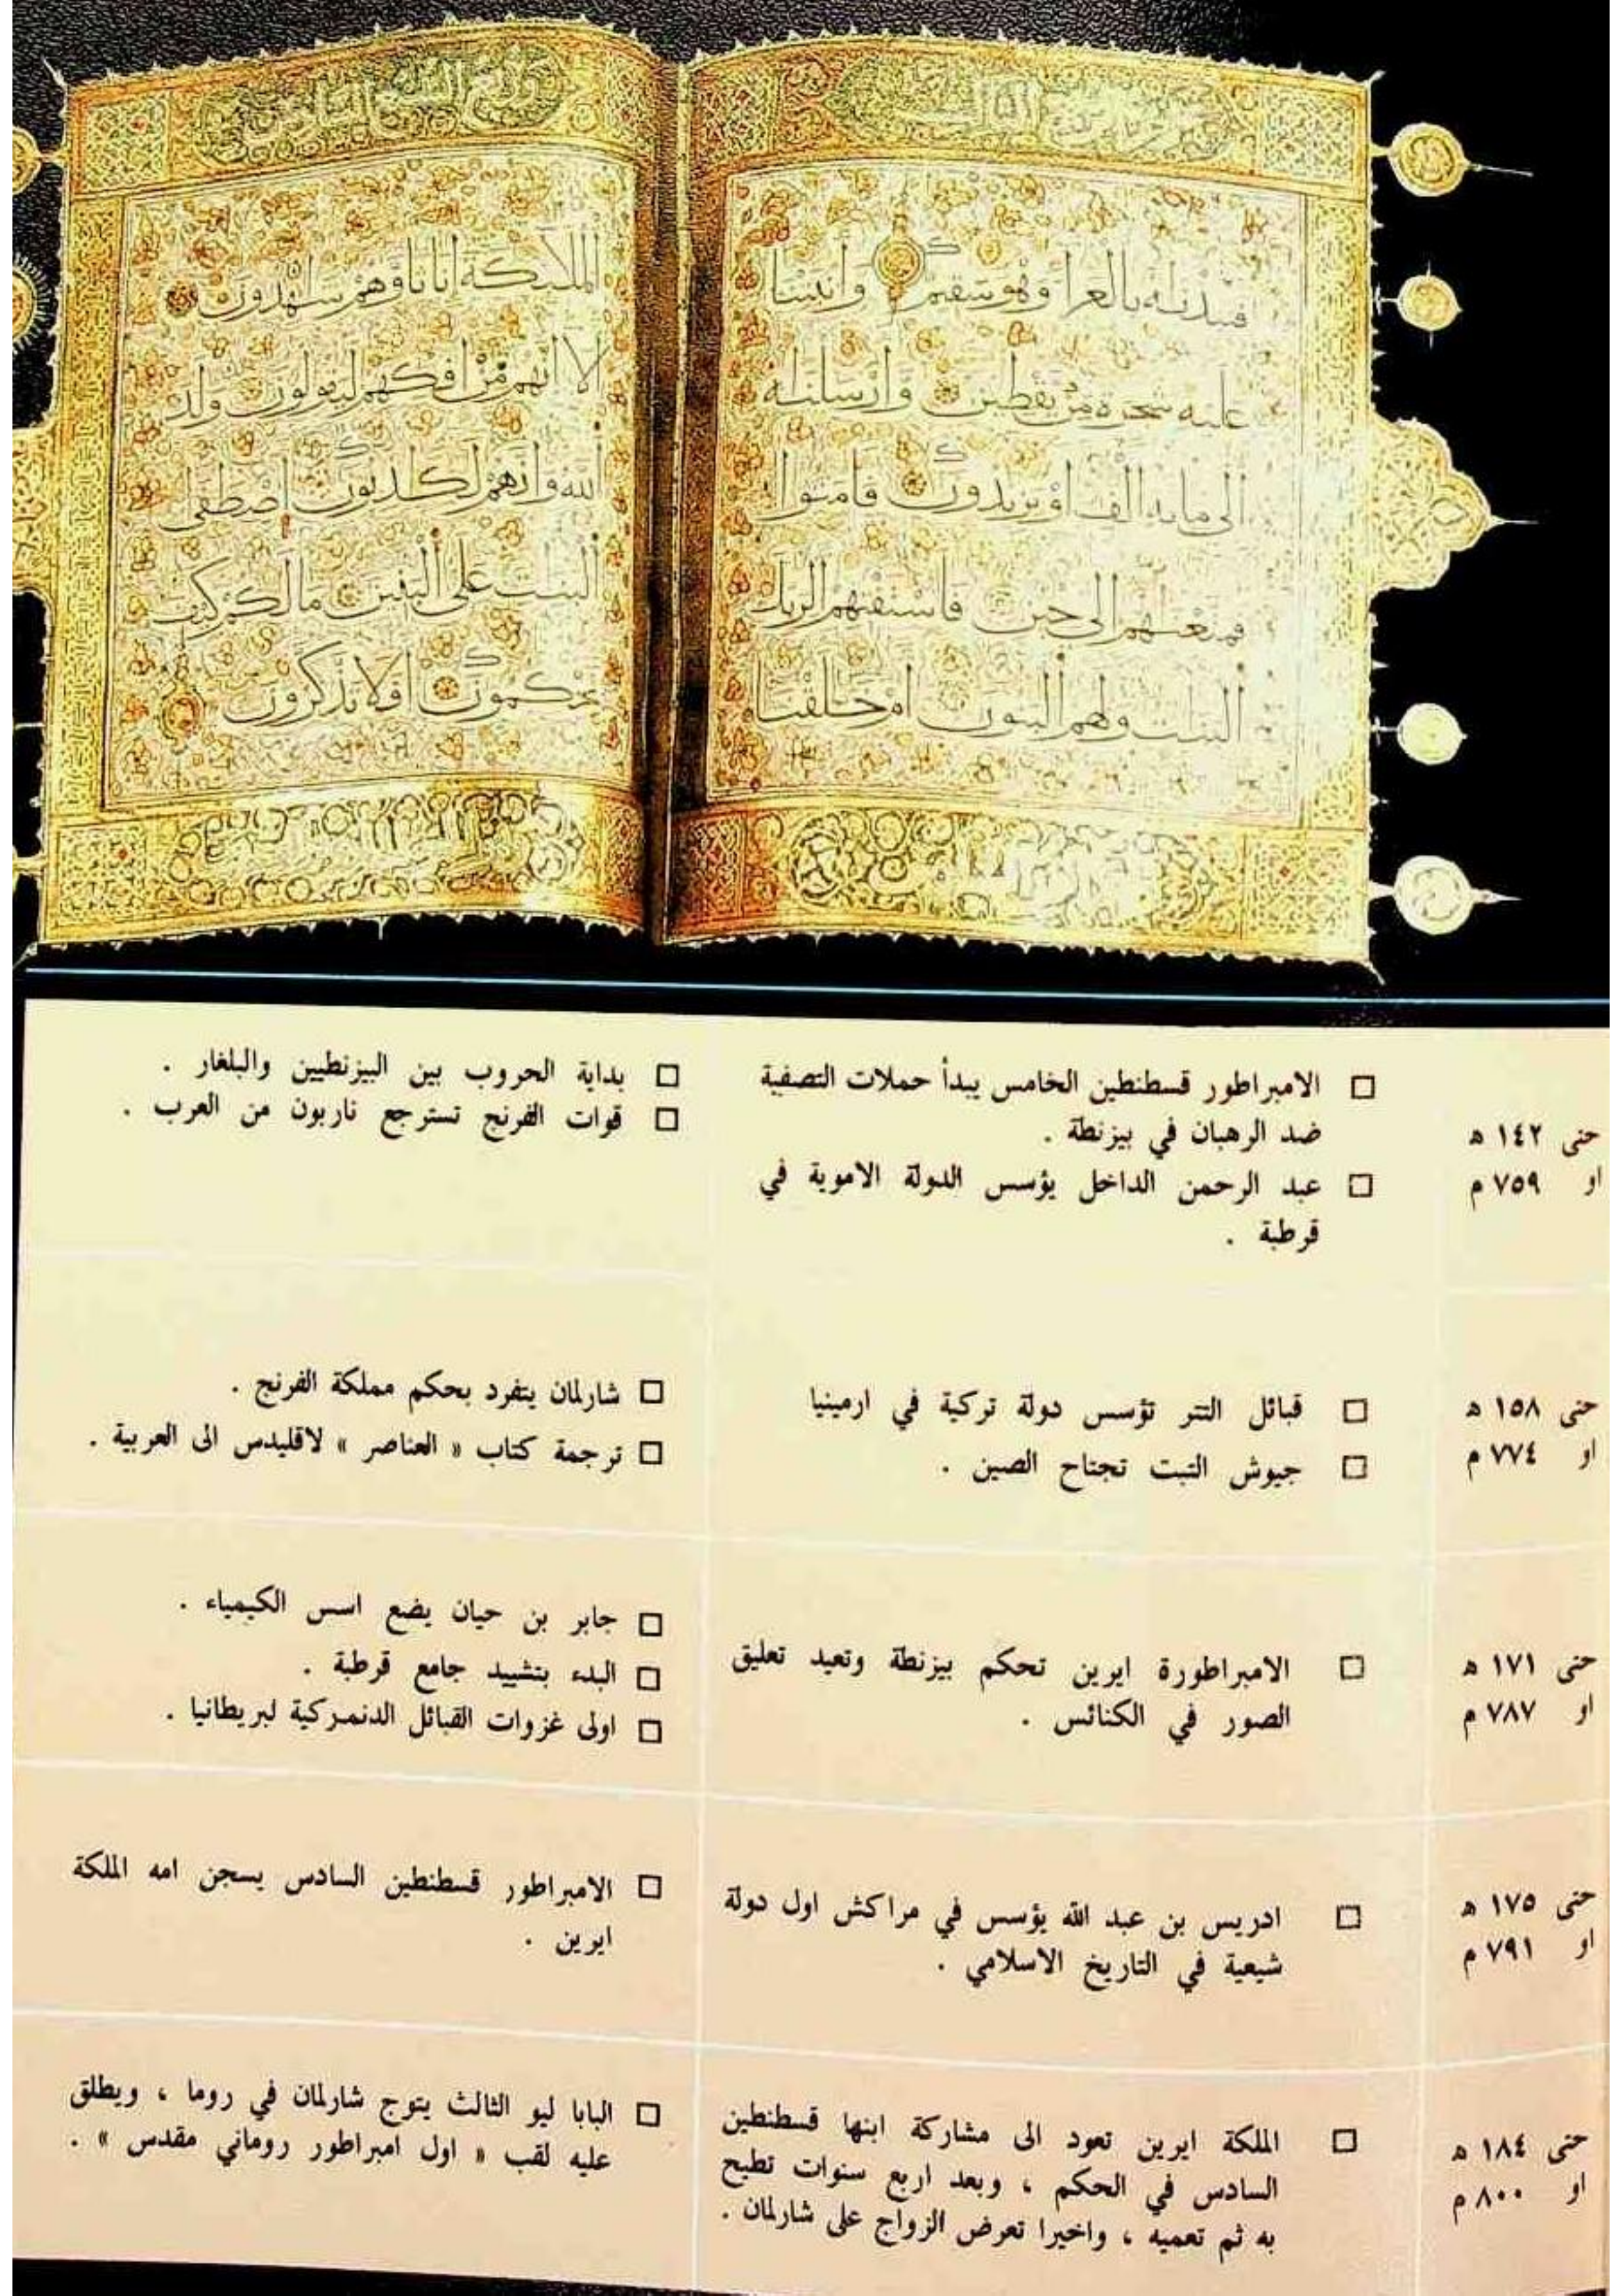 فنبذناه بالعرا وهو سقيم وانبتنا
عليه شجرة من يقطين وارسلناه
الى مايه الف او يزيدون فامنوا
فمتعناهم الى حين فاستفتهم الربك
البنات ولهم البنون ام خلقنا
الملائكة اناثا وهم شاهدون
الا انهم من افكهم ليقولون ولد
الله وانهم لكاذبون اصطفى
البنات على البنين مالكم كيف
تحكمون افلا تذكرون
حتى ١٤٢ ه
او ٧٥٩ م
□ الامبراطور قسطنطين الخامس يبدأ حملات التصفية
ضد الرهبان في بيزنطة .
□ عبد الرحمن الداخل يؤسس الدولة الاموية في
قرطبة .
□ بداية الحروب بين البيزنطيين والبلغار .
□ قوات الفرنج تسترجع ناربون من العرب .
حتى ١٥٨ ه
او ٧٧٤ م
□ قبائل التتر تؤسس دولة تركية في ارمينيا
□ جيوش التبت تجتاح الصين .
□ شارلمان يتفرد بحكم مملكة الفرنج .
□ ترجمة كتاب « العناصر » لاقليدس الى العربية .
حتى ١٧١ ه
او ٧٨٧ م
□ الامبراطورة ايرين تحكم بيزنطة وتعيد تعليق
الصور في الكنائس .
□ جابر بن حيان يضع اسس الكيمياء .
□ البدء بتشييد جامع قرطبة .
□ اولى غزوات القبائل الدنمركية لبريطانيا .
حتى ١٧٥ ه
او ٧٩١ م
□ ادريس بن عبد الله يؤسس في مراكش اول دولة
شيعية في التاريخ الاسلامي .
□ الامبراطور قسطنطين السادس يسجن امه الملكة
ايرين .
حتى ١٨٤ ه
او ٨٠٠ م
□ الملكة ايرين تعود الى مشاركة ابنها قسطنطين
السادس في الحكم ، وبعد اربع سنوات تطيح
به ثم تعميه ، واخيرا تعرض الزواج على شارلمان .
□ البابا ليو الثالث يتوج شارلمان في روما ، ويطلق
عليه لقب « اول امبراطور روماني مقدس » .